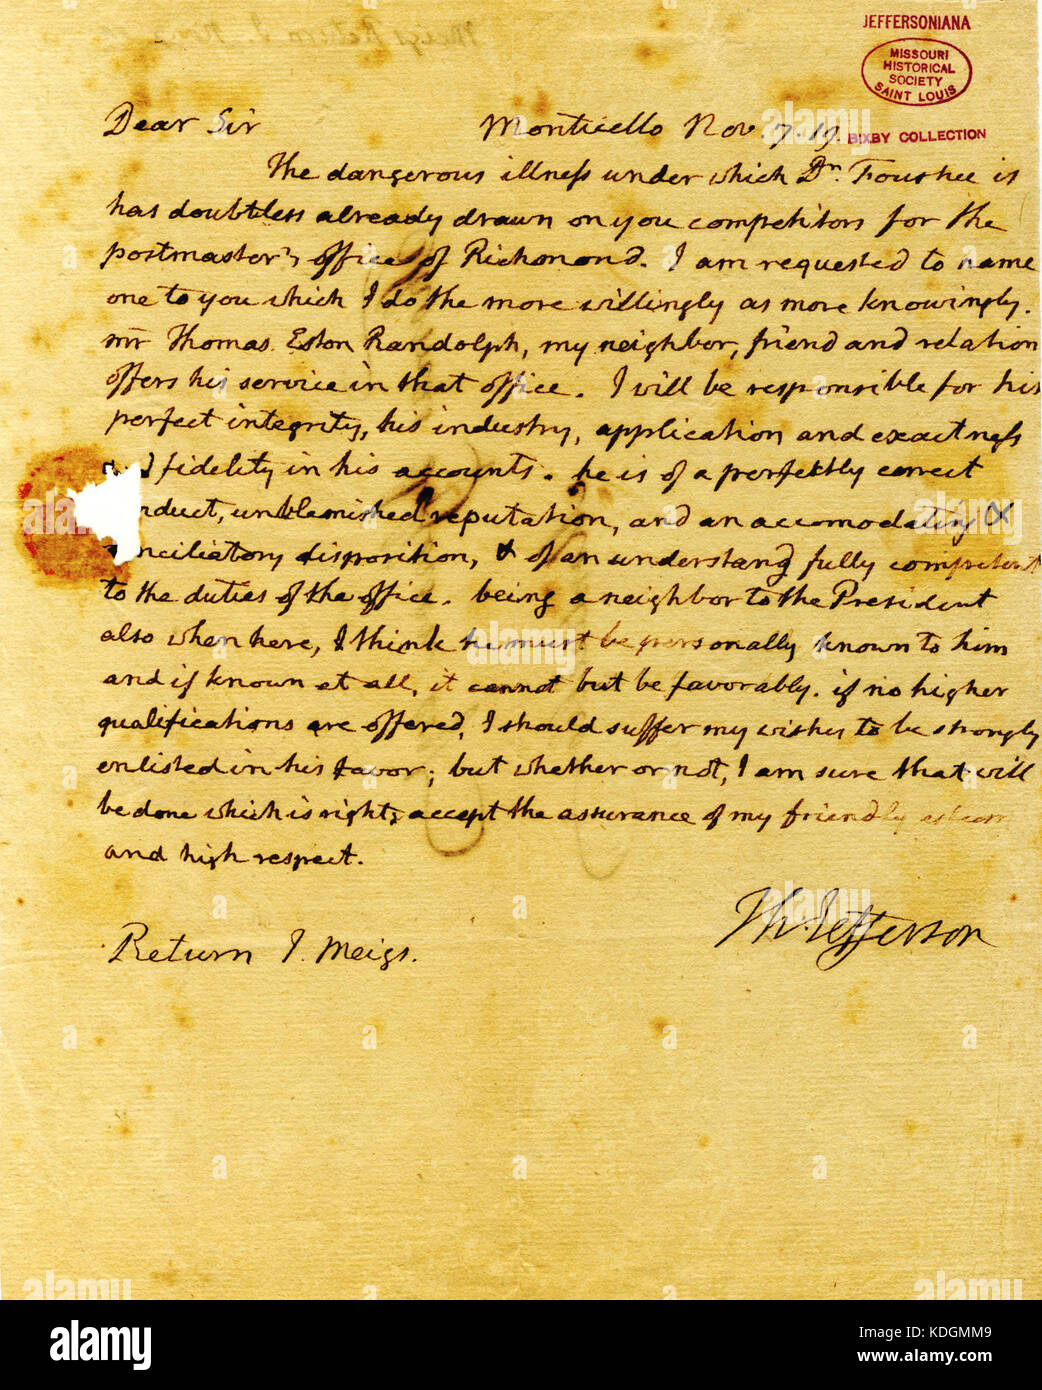 JEFFERSONIANA
MISSOURI
HISTORICAL
SOCIETY
SAINT LOUIS
BIXBY COLLECTION
Dear Sir Monticello Nov. 7. 19.
The dangerous illness under which Dr. Foushee is
has doubtless already drawn on you competitors for the
postmaster's office of Richmond. I am requested to name
one to you which I do the more willingly as more knowingly.
mr Thomas Eston Randolph, my neighbor, friend and relation
offers his service in that office. I will be responsible for his
perfect integrity, his industry, application and exactness
fidelity in his accounts. he is of a perfectly correct
nduct, unblemished reputation, and an accomodating &
nciliatory disposition, & of an understandg fully competent
to the duties of the office. being a neighbor to the President
also when here, I think he must be personally known to him
and if known at all, it cannot but be favorably. if no higher
qualifications are offered, I should suffer my wishes to be strongly
enlisted in his favor; but whether or not, I am sure that will
be done which is right; accept the assurance of my friendly esteem
and high respect.
Th: Jefferson
Return J. Meigs.
alamy
a alamy
Image ID: KDGMM9
www.alamy.com